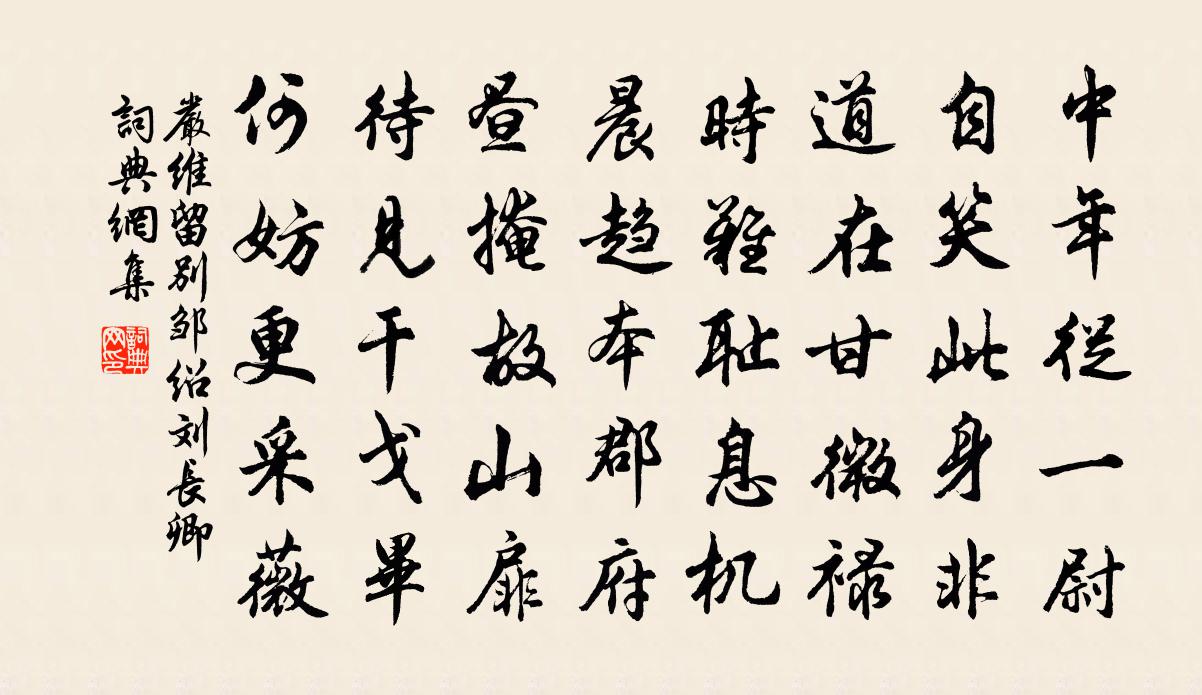 中年從一尉
自笑此身非
道在甘微禄
時難耻息机
晨趋本郡府
昼掩故山扉
待見干戈畢
何妨更采薇
嚴維留别邹绍刘長卿
詞典網集
詞典网印